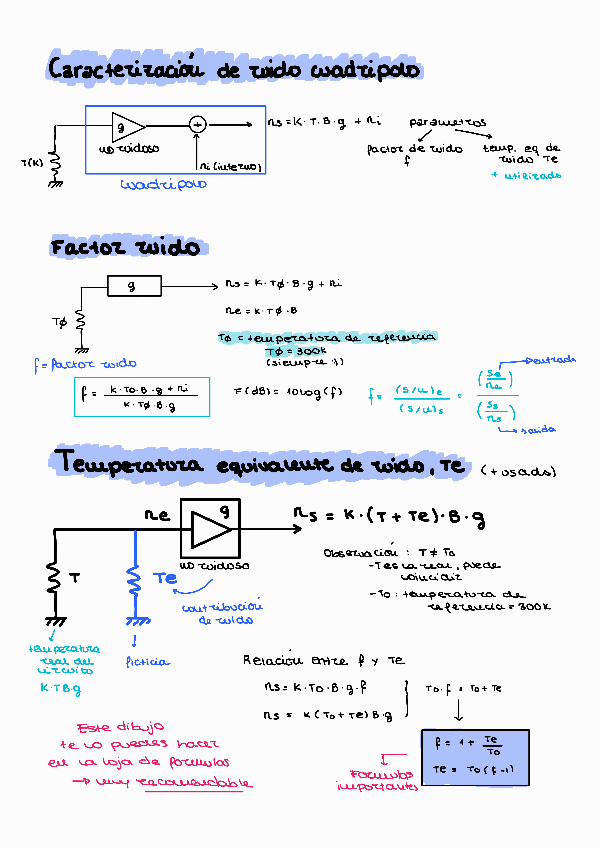 Caracterización de ruido cuadripolo
g
no ruidoso
T(K)
ni (interno)
cuadripolo
ns = K·T·B·g + ni
parametros
factor de ruido
f
temp. eq de
ruido Te
+ utilizado
Factor ruido
g
TØ
ns = K·TØ·B·g + ni
ne = K·TØ·B
TØ = temperatura de referencia
TØ = 300K
(siempre :))
f = factor ruido
f = K·To·B·g + ni / K·TØ·B·g
F(dB) = 10log(f)
f = (S/N)e / (S/N)s = (Se/ne) / (Ss/ns)
entrada
salida
Temperatura equivalente de ruido, Te (+ usado)
ne
g
ns = K·(T+Te)·B·g
no ruidoso
T
Te
contribución
de ruido
temperatura
real del
circuito
K·TB·g
ficticia
Observación : T ≠ To
-T es la real, puede
coincidir
-To : temperatura de
referencia = 300K
Relación entre f y Te
ns = K·To·B·g·f
ns = K(To+Te)B·g
To·f = To+Te
f = 1 + Te/To
Te = To(f-1)
Formulas
importantes
Este dibujo
te lo puedes hacer
en la hoja de formulas
→ muy recomendable